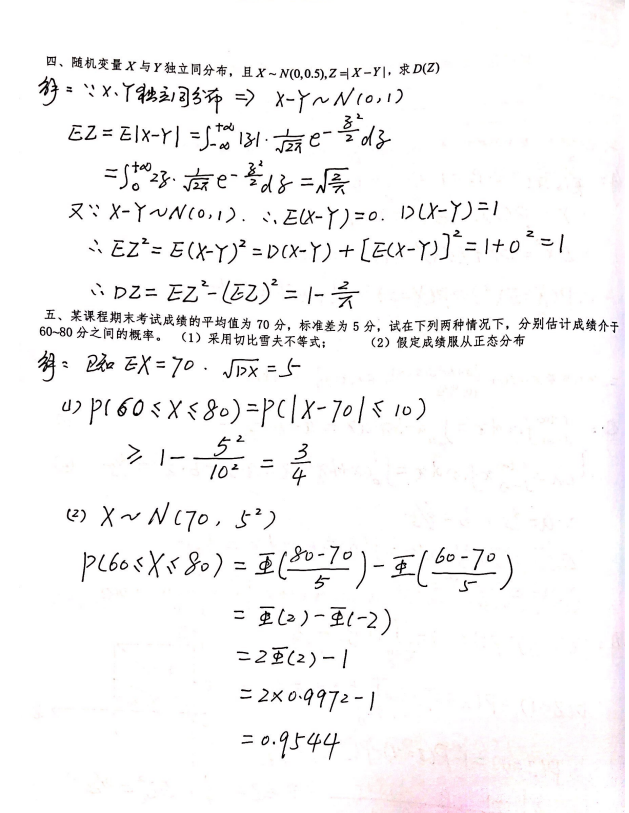 四、随机变量 X 与 Y 独立同分布，且 X ~ N(0,0.5), Z =| X −Y|，求 D(Z)
解：∵ X、Y独立同分布 ⇒ X-Y ~ N(0,1)
EZ = E|X-Y| = ∫_{-∞}^{+∞} |z|·\frac{1}{\sqrt{2π}} e^{-\frac{z^2}{2}} dz
= ∫_0^{+∞} 2z·\frac{1}{\sqrt{2π}} e^{-\frac{z^2}{2}} dz = \sqrt{\frac{2}{π}}
又∵ X-Y ~ N(0,1). ∴ E(X-Y)=0. D(X-Y)=1
∴ EZ² = E(X-Y)² = D(X-Y) + [E(X-Y)]² = 1+0² = 1
∴ DZ = EZ² - (EZ)² = 1 - \frac{2}{π}
五、某课程期末考试成绩的平均值为 70 分，标准差为 5 分，试在下列两种情况下，分别估计成绩介于
60~80 分之间的概率。（1）采用切比雪夫不等式；（2）假定成绩服从正态分布
解：已知 EX=70. \sqrt{DX} = 5
(1) P(60≤X≤80) = P(|X-70|≤10)
≥ 1 - \frac{5^2}{10^2} = \frac{3}{4}
(2) X ~ N(70, 5²)
P(60≤X≤80) = Φ(\frac{80-70}{5}) - Φ(\frac{60-70}{5})
= Φ(2) - Φ(-2)
= 2Φ(2) - 1
= 2×0.9972 - 1
= 0.9544